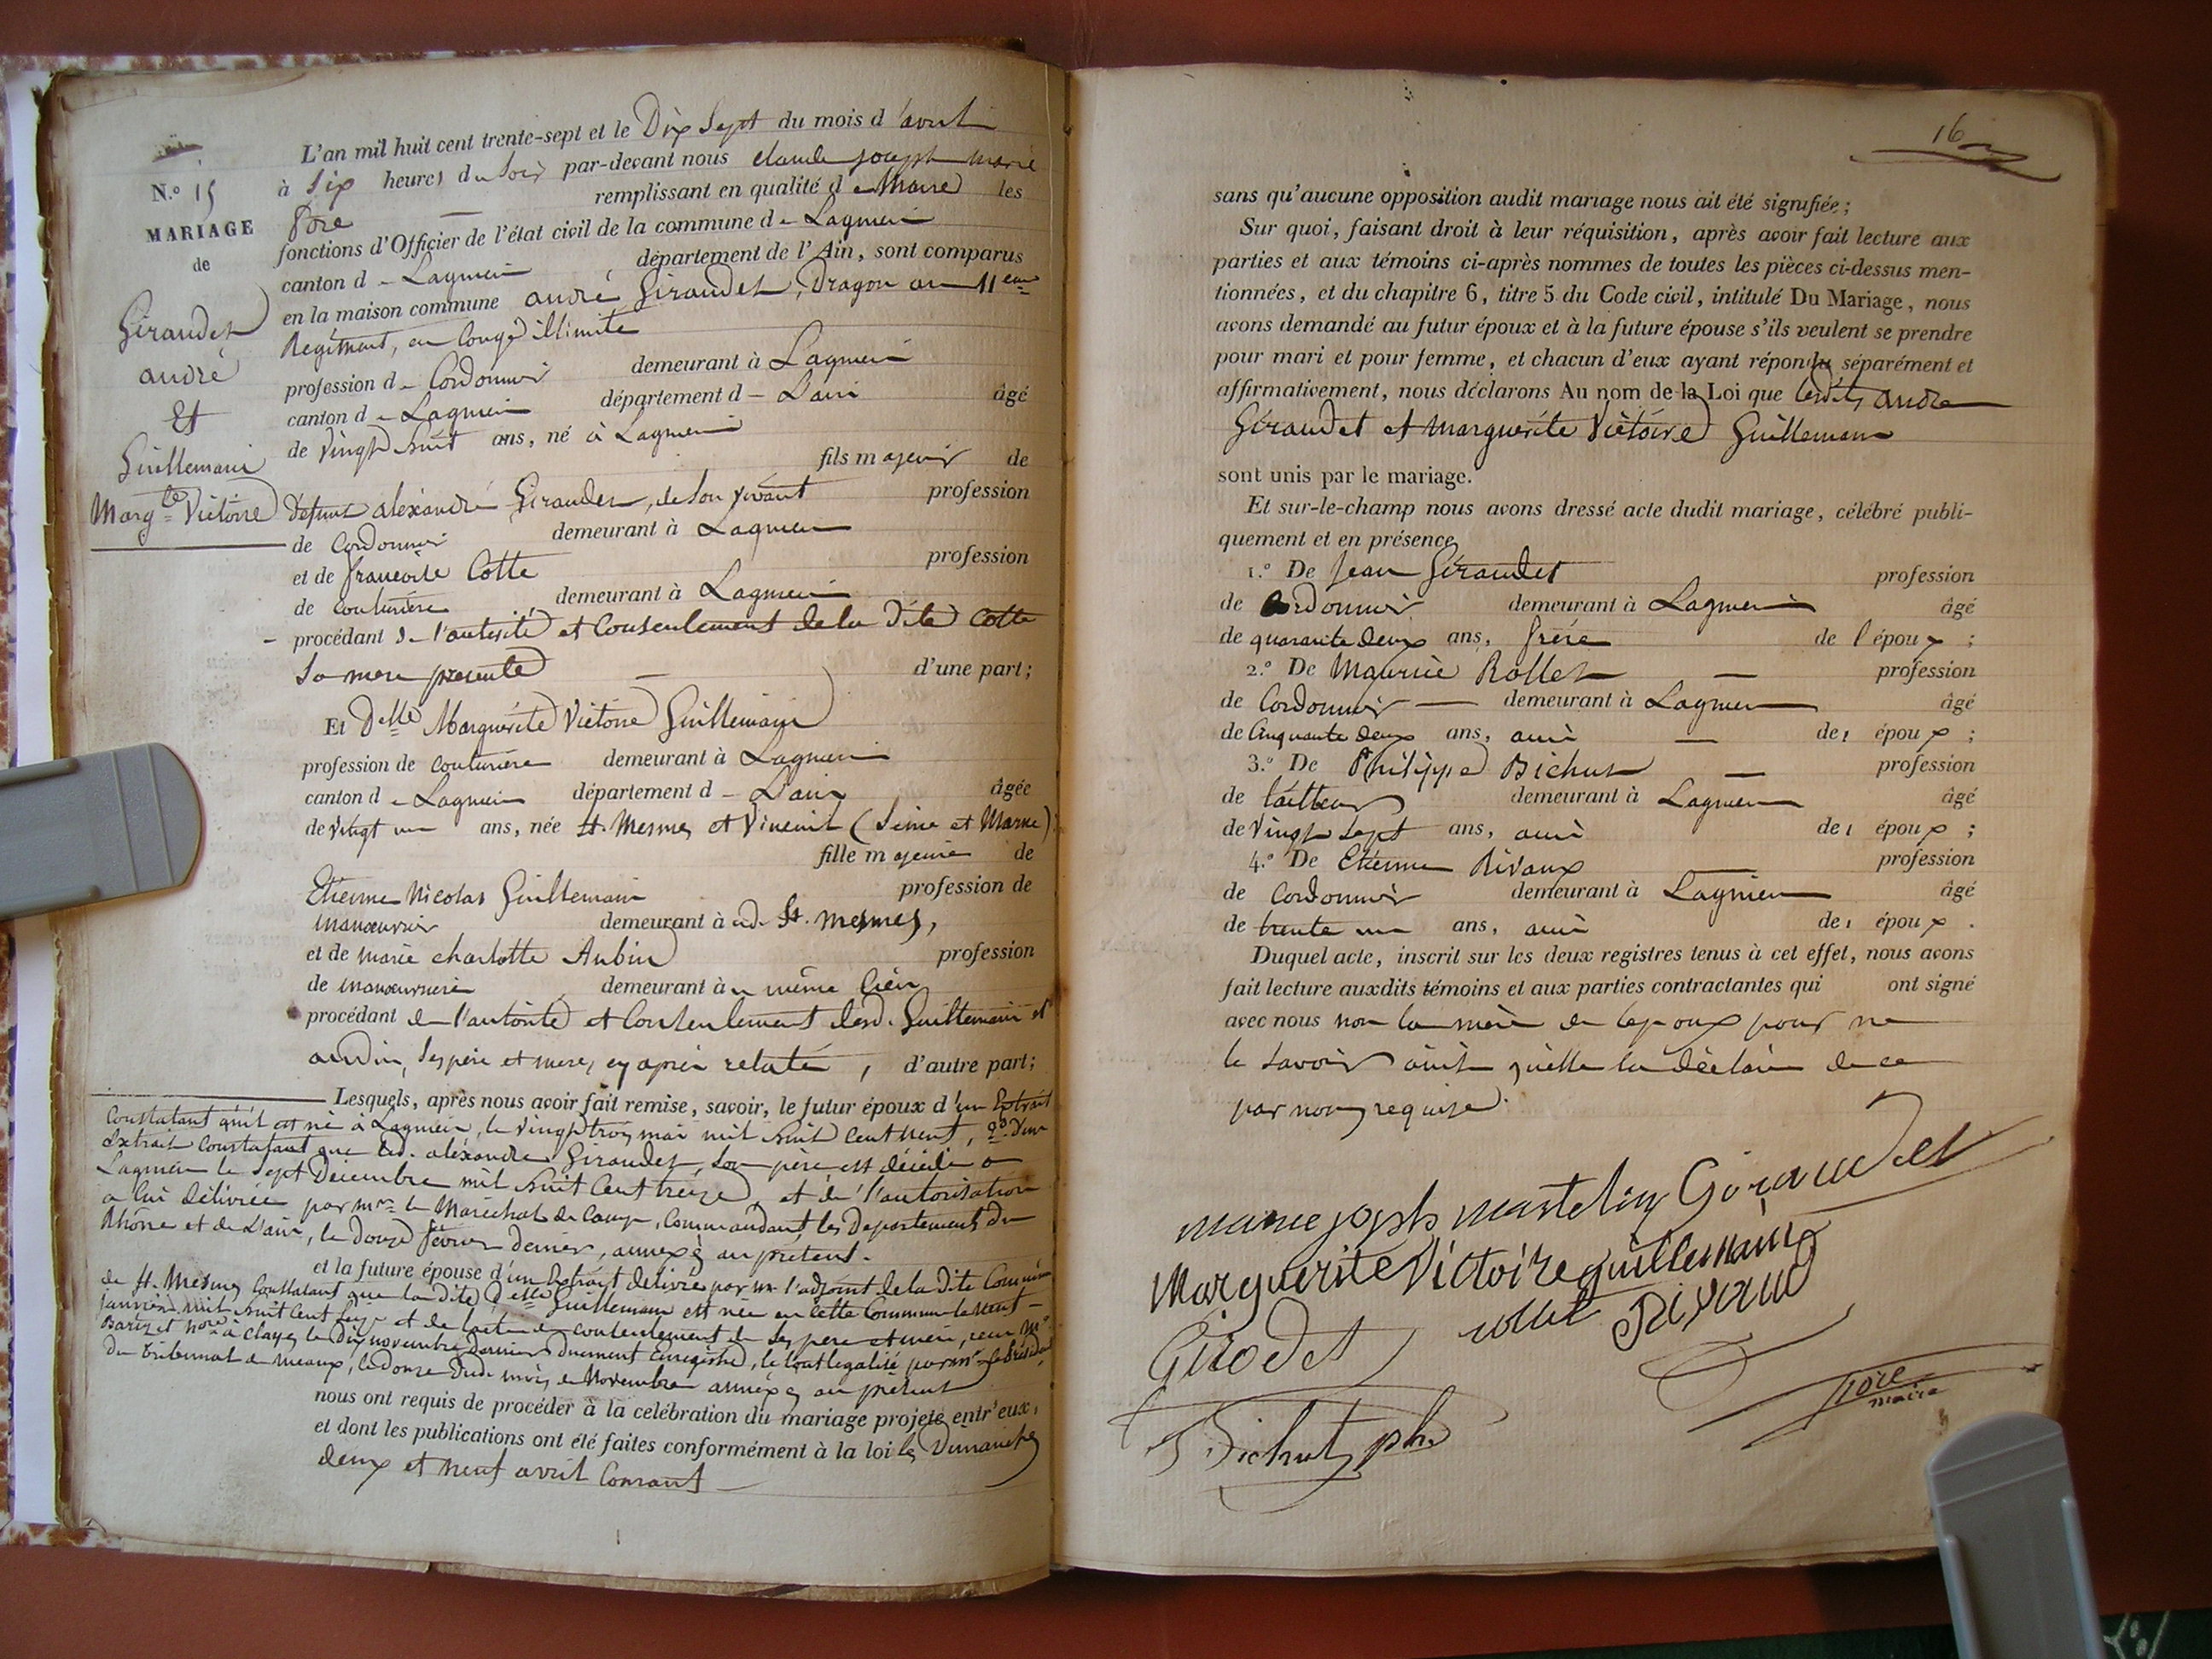 N.º 15
MARIAGE
de
Giraudet
andré
Et
Guillemain
Marg.te Victoire
L'an mil huit cent trente-sept et le Dix Sept du mois d'avril
à Six heures du Soir par-devant nous Claude joseph marie
Pore remplissant en qualité de Maire les
fonctions d'Officier de l'état civil de la commune de Lagnieu
canton de Lagnieu département de l'Ain, sont comparus
en la maison commune andré Giraudet, Dragon au 11eme
Régiment, en Congé illimité
profession de Cordonnier demeurant à Lagnieu
canton de Lagnieu département d L'ain âgé
de vingt huit ans, né à Lagnieu
fils majeur de
défunt aléxandre Giraudet, de son vivant profession
de Cordonnier demeurant à Lagnieu
et de françoise Cotte profession
de Couturière demeurant à Lagnieu
procédant de l'autorité et Consentement de la dite Cotte
Sa mere presente d'une part;
Et Delle Marguérite Victoire Guillemain
profession de couturière demeurant à Lagnieu
canton de Lagnieu département d L'ain âgée
de vingt un ans, née St. Mesmes et Vineuil (Seine et Marne)
fille majeure de
Etienne Nicolas Guillemain profession de
manoeuvrier demeurant à ud. St. Mesmes,
et de marie charlotte Aubin profession
de manoeuvriere demeurant à même lieu
procédant de l'autorité et Consentement desd. Guillemain et
audin, ses père et mere, cy après relaté, d'autre part;
Lesquels, après nous avoir fait remise, savoir, le futur époux d'un Extrait
Constatant qu'il est né à Lagnieu, le vingt trois mai mil huit Cent neuf, 2º d'un
Extrait Constatant que led. aléxandre Giraudet, Son père est décédé a
Lagnieu le Sept Décembre mil huit Cent treize, et de l'autorisation
a lui délivrée par mr. le Maréchal de Camp, Commandant les Departements du
Rhône et de L'ain, le Douze février dernier, annexés au présent.
et la future épouse d'un Extrait delivré par mr l'adjoint de la dite Commune
de St. Mesmes Constatant que la dite Delle Guillemain est née en cette Commune le neuf
janvier mil huit Cent seize et de l'acte de consentement de ses pere et mere, reçu Me
Baret nore à Claye, le Dix novembre dernier Duement Enregistré, le tout légalisé par mr le Président
du Tribunal de meaux, le douze dud. mois de Novembre annéxés au présent
nous ont requis de procéder à la celébration du mariage projeté entr'eux,
et dont les publications ont été faites conformément à la loi les Dimanches
deux et neuf avril Courant
16
sans qu'aucune opposition audit mariage nous ait été signifiée;
Sur quoi, faisant droit à leur réquisition, après avoir fait lecture aux
parties et aux témoins ci-après nommes de toutes les pièces ci-dessus men-
tionnées, et du chapitre 6, titre 5 du Code civil, intitulé Du Mariage, nous
avons demandé au futur époux et à la future épouse s'ils veulent se prendre
pour mari et pour femme, et chacun d'eux ayant répondu séparément et
affirmativement, nous déclarons Au nom de la Loi que lesdits André
Giraudet et Marguerite Victoire Guillemain
sont unis par le mariage.
Et sur-le-champ nous avons dressé acte dudit mariage, célébré publi-
quement et en présence
1.º De Jean Giraudet profession
de Cordonnier demeurant à Lagnieu âgé
de quarante deux ans, frère de l'époux;
2.º De Maurice Rollet profession
de Cordonnier demeurant à Lagnieu âgé
de Cinquante deux ans, ami des époux;
3.º De Philippe Bichut profession
de tailleur demeurant à Lagnieu âgé
de Vingt Sept ans, ami des époux;
4.º De Etienne Rivaux profession
de Cordonnier demeurant à Lagnieu âgé
de trente un ans, ami des époux.
Duquel acte, inscrit sur les deux registres tenus à cet effet, nous avons
fait lecture auxdits témoins et aux parties contractantes qui ont signé
avec nous non la mère de l'epoux pour ne
le savoir ainsi qu'elle la déclaré de ce
par nous requise.
Giraudet
Marguerite Victoire guillemain
Girodet Rivaud
Bichut ph.
Pore
maire